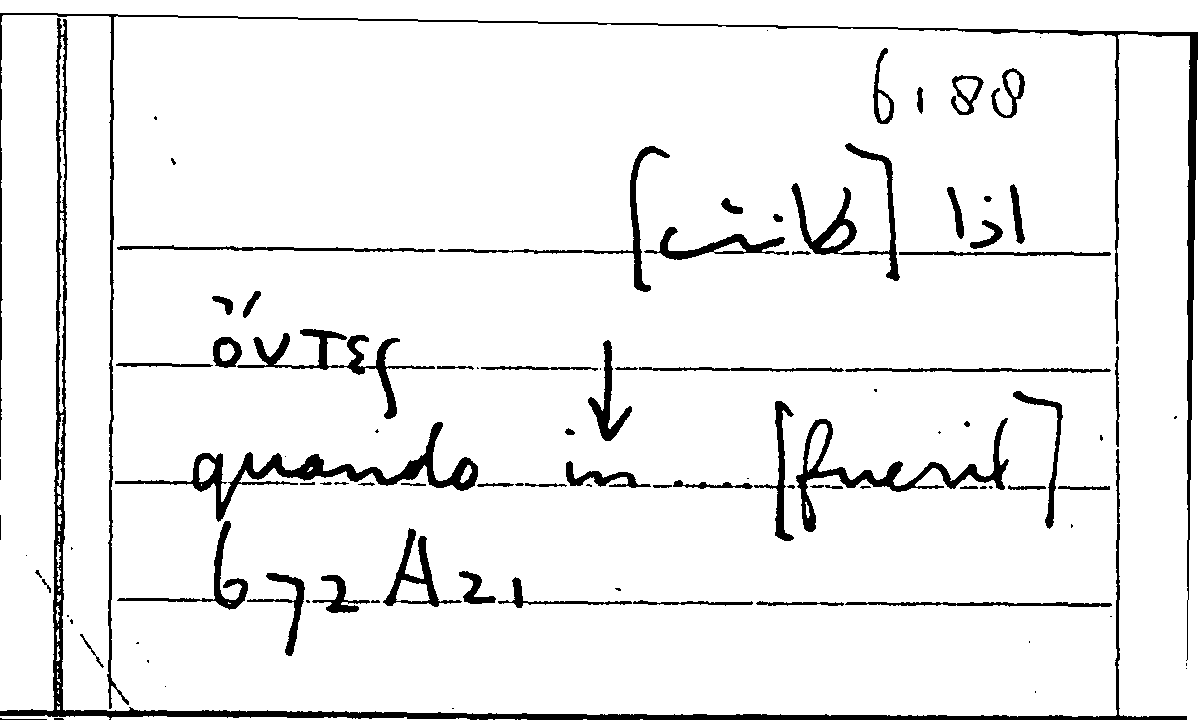 6,88
اذا [كانت]
ὄντες ↓
quando in ..... [fuerit]
672 A 21